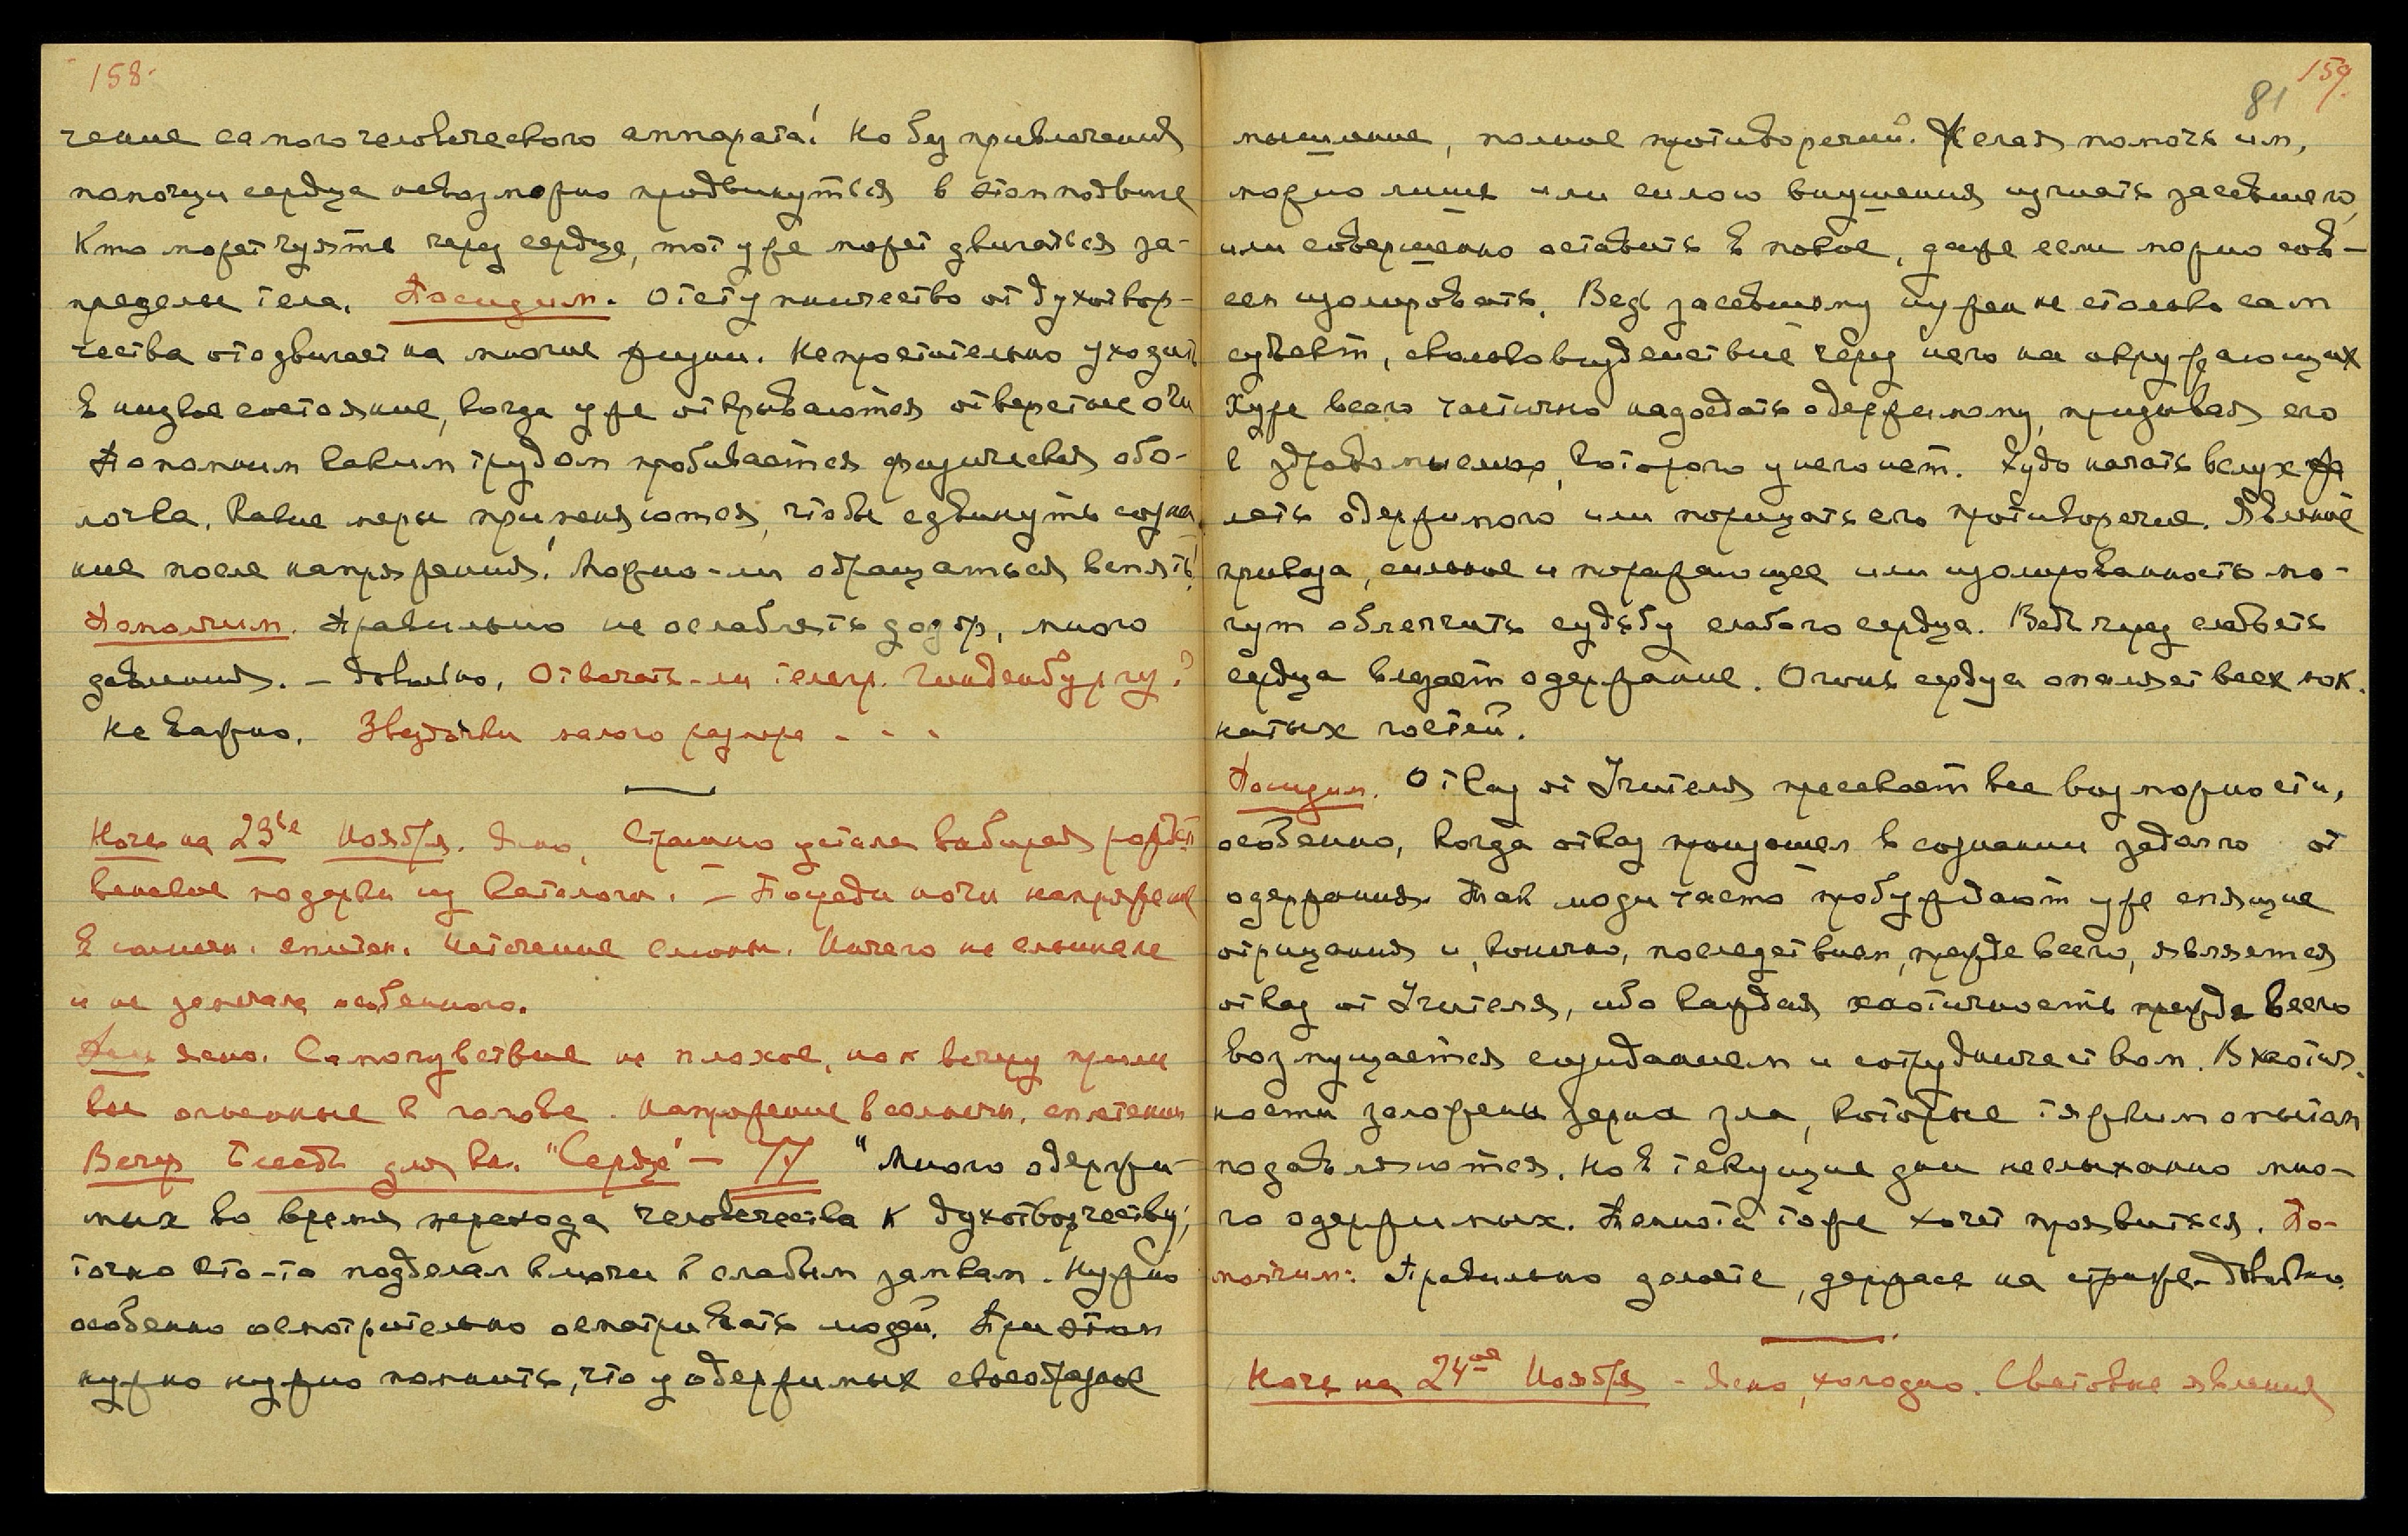 158.
чение самого человеческого аппарата! Но без привлечения
помощи сердца невозможно продвинуться в этом подвиге
Кто может чуять через сердце, тот уже может двигаться за-
пределы тела. Посидим. Отступничество от духотвор-
чества отодвигает на многие жизни. Непростительно уходить
в низкое состояние, когда уже открываются отверстые очи
Попомним каким трудом пробивается физическая обо-
лочка. Какие меры применяются, чтобы сдвинуть созна-
ние после напряжения! Можно-ли обращаться вспять!
Помолчим. Правильно не ослаблять дозор, много
давления. – Довольно. Отвечать-ли телегр. Гинденбургу?
Не важно. Звездочки малого размера - - -
Ночь на 23ье Ноября. Ясно. Страшно устала выбирая рожд.
подарки из каталога. – Посреди ночи напряжение
в солнечн. сплетен. Истечение слюны. Ничего не слышала
и не заметила особенного.
День ясно. Самочувствие не плохое, но к вечеру прили
вы огненные к голове. Напряжение в солнечн. сплетении
Вечер Беседа для кн. "Сердце" – "Много одержи-
мых во время перехода человечества к духотворчеству;
точно кто-то подделал ключи к слабым замкам. Нужно
особенно осмотрительно осматривать людей. При этом
нужно нужно помнить, что у одержимых своеобразное
159.
81
мышление, полное противоречий. Желая помочь им,
можно лишь или силою внушения изгнать засевшего,
или совершенно оставить в покое, даже если можно сов-
сем изолировать. Ведь засевшему нужен не столько сам
субъект, сколько воздействие через него на окружающих
Хуже всего частично надоедать одержимому, призывая его
к здравомыслию, которого у него нет. Худо начать вслух жа
леть одержимого или порицать его противоречие. Явление
приказа, сильное и поражающее или изолированность мо-
гут облегчить судьбу слабого сердца. Ведь через слабость
сердца влезает одержание. Огонь сердца опаляет всех мох.
натых гостей.
Посидим. Отказ от Учителя пресекает все возможности,
особенно, когда отказ произошел в сознании задолго от
одержания. Так люди часто пробуждают уже спящие
отрицания и, конечно, последствием, прежде всего, является
отказ от Учителя, ибо каждая хаотичность прежде всего
возмущается созиданием и сотрудничеством. В хаотич.
ности заложены зерна зла, которые тяжким опытом
подавляются. Но в текущие дни неслыханно мно-
го одержимых. Темнота тоже хочет проявиться. По-
молчим. Правильно делаете, держась на страже – довольно.
Ночь на 24ое Ноября – Ясно, холодно. Световые явления